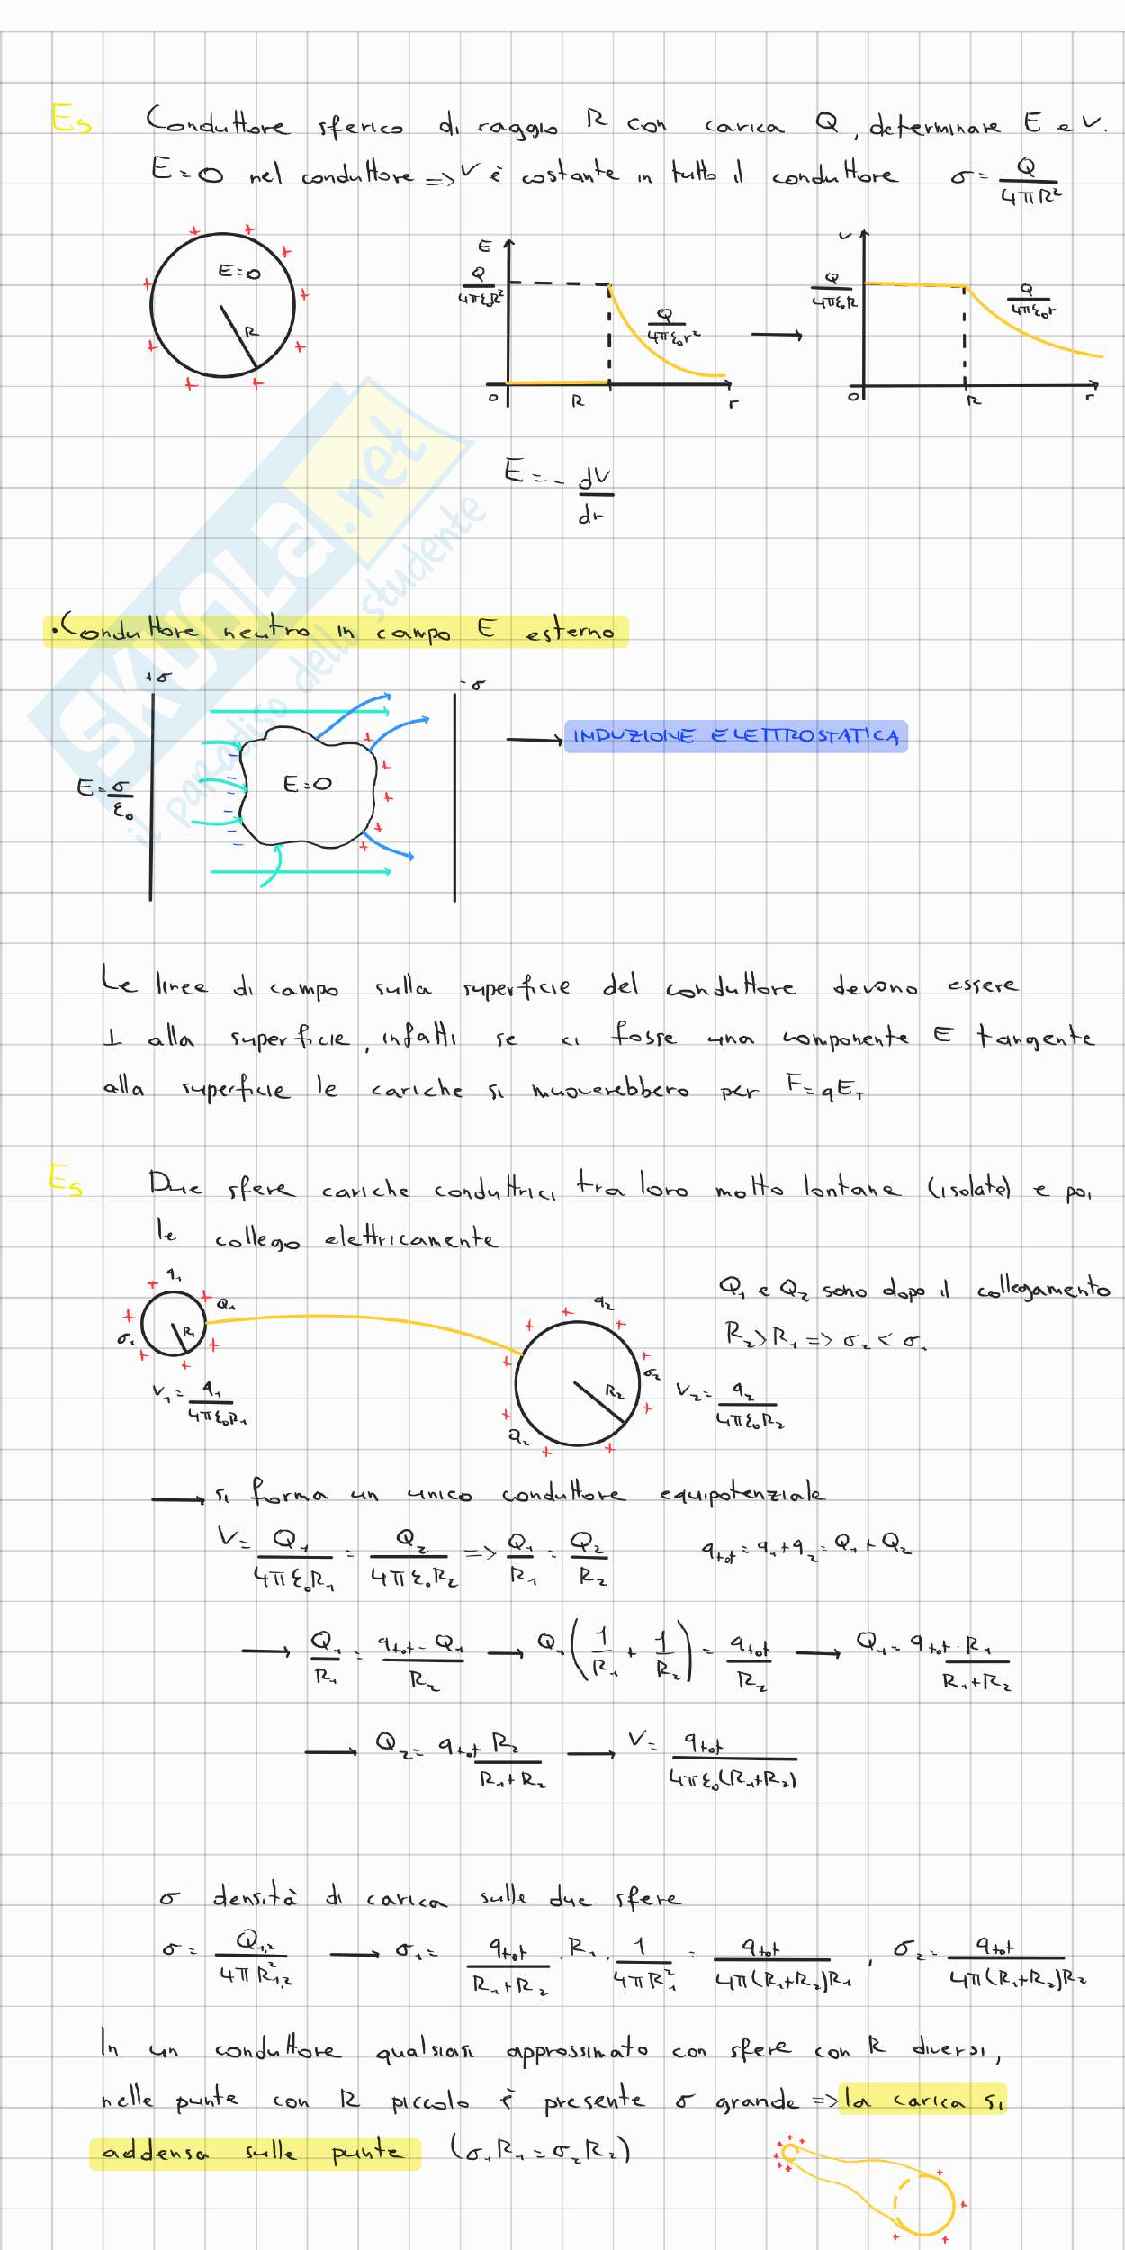 Es Conduttore sferico di raggio R con carica Q, determinare E e V.
E=0 nel conduttore => V è costante in tutto il conduttore σ = Q/4πR²
E=0
R
E
Q/4πε₀R²
Q/4πε₀r²
0 R r
V
Q/4πε₀R
Q/4πε₀r
0 R r
E = - dV/dr
SKUOLA.net
il paradiso dello studente
• Conduttore neutro in campo E esterno
+σ -σ
E = σ/ε₀
E=0
→ INDUZIONE ELETTROSTATICA
Le linee di campo sulla superficie del conduttore devono essere
⊥ alla superficie, infatti se ci fosse una componente E tangente
alla superficie le cariche si muoverebbero per F=qE_T
Es Due sfere cariche conduttrici tra loro molto lontane (isolate) e poi
le collego elettricamente
q₁
Q₁
R₁
σ₁
V₁ = q₁/4πε₀R₁
q₂
σ₂
R₂
Q₂
V₂ = q₂/4πε₀R₂
Q₁ e Q₂ sono dopo il collegamento
R₂>R₁ => σ₂<σ₁
→ si forma un unico conduttore equipotenziale
V = Q₁/4πε₀R₁ = Q₂/4πε₀R₂ => Q₁/R₁ = Q₂/R₂ q_tot = q₁+q₂ = Q₁+Q₂
→ Q₁/R₁ = (q_tot - Q₁)/R₂ → Q₁(1/R₁ + 1/R₂) = q_tot/R₂ → Q₁ = q_tot · R₁/(R₁+R₂)
→ Q₂ = q_tot R₂/(R₁+R₂) → V = q_tot/4πε₀(R₁+R₂)
σ densità di carica sulle due sfere
σ = Q₁,₂/4πR²₁,₂ → σ₁ = q_tot/(R₁+R₂) · R₁ · 1/4πR₁² = q_tot/4π(R₁+R₂)R₁ , σ₂ = q_tot/4π(R₁+R₂)R₂
In un conduttore qualsiasi approssimato con sfere con R diversi,
nelle punte con R piccolo è presente σ grande => la carica si
addensa sulle punte (σ₁R₁ = σ₂R₂)